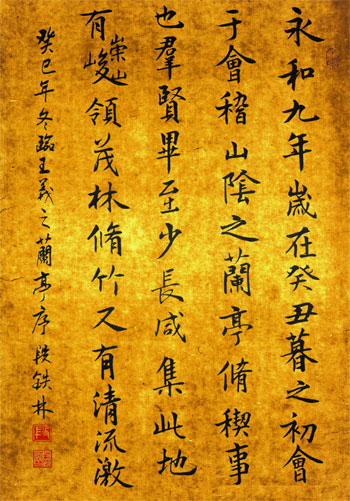 永和九年歲在癸丑暮之初會
于會稽山陰之蘭亭脩稧事
也羣賢畢至少長咸集此地
有崇山峻領茂林脩竹又有清流激
癸巳年冬臨王羲之蘭亭序鉄林